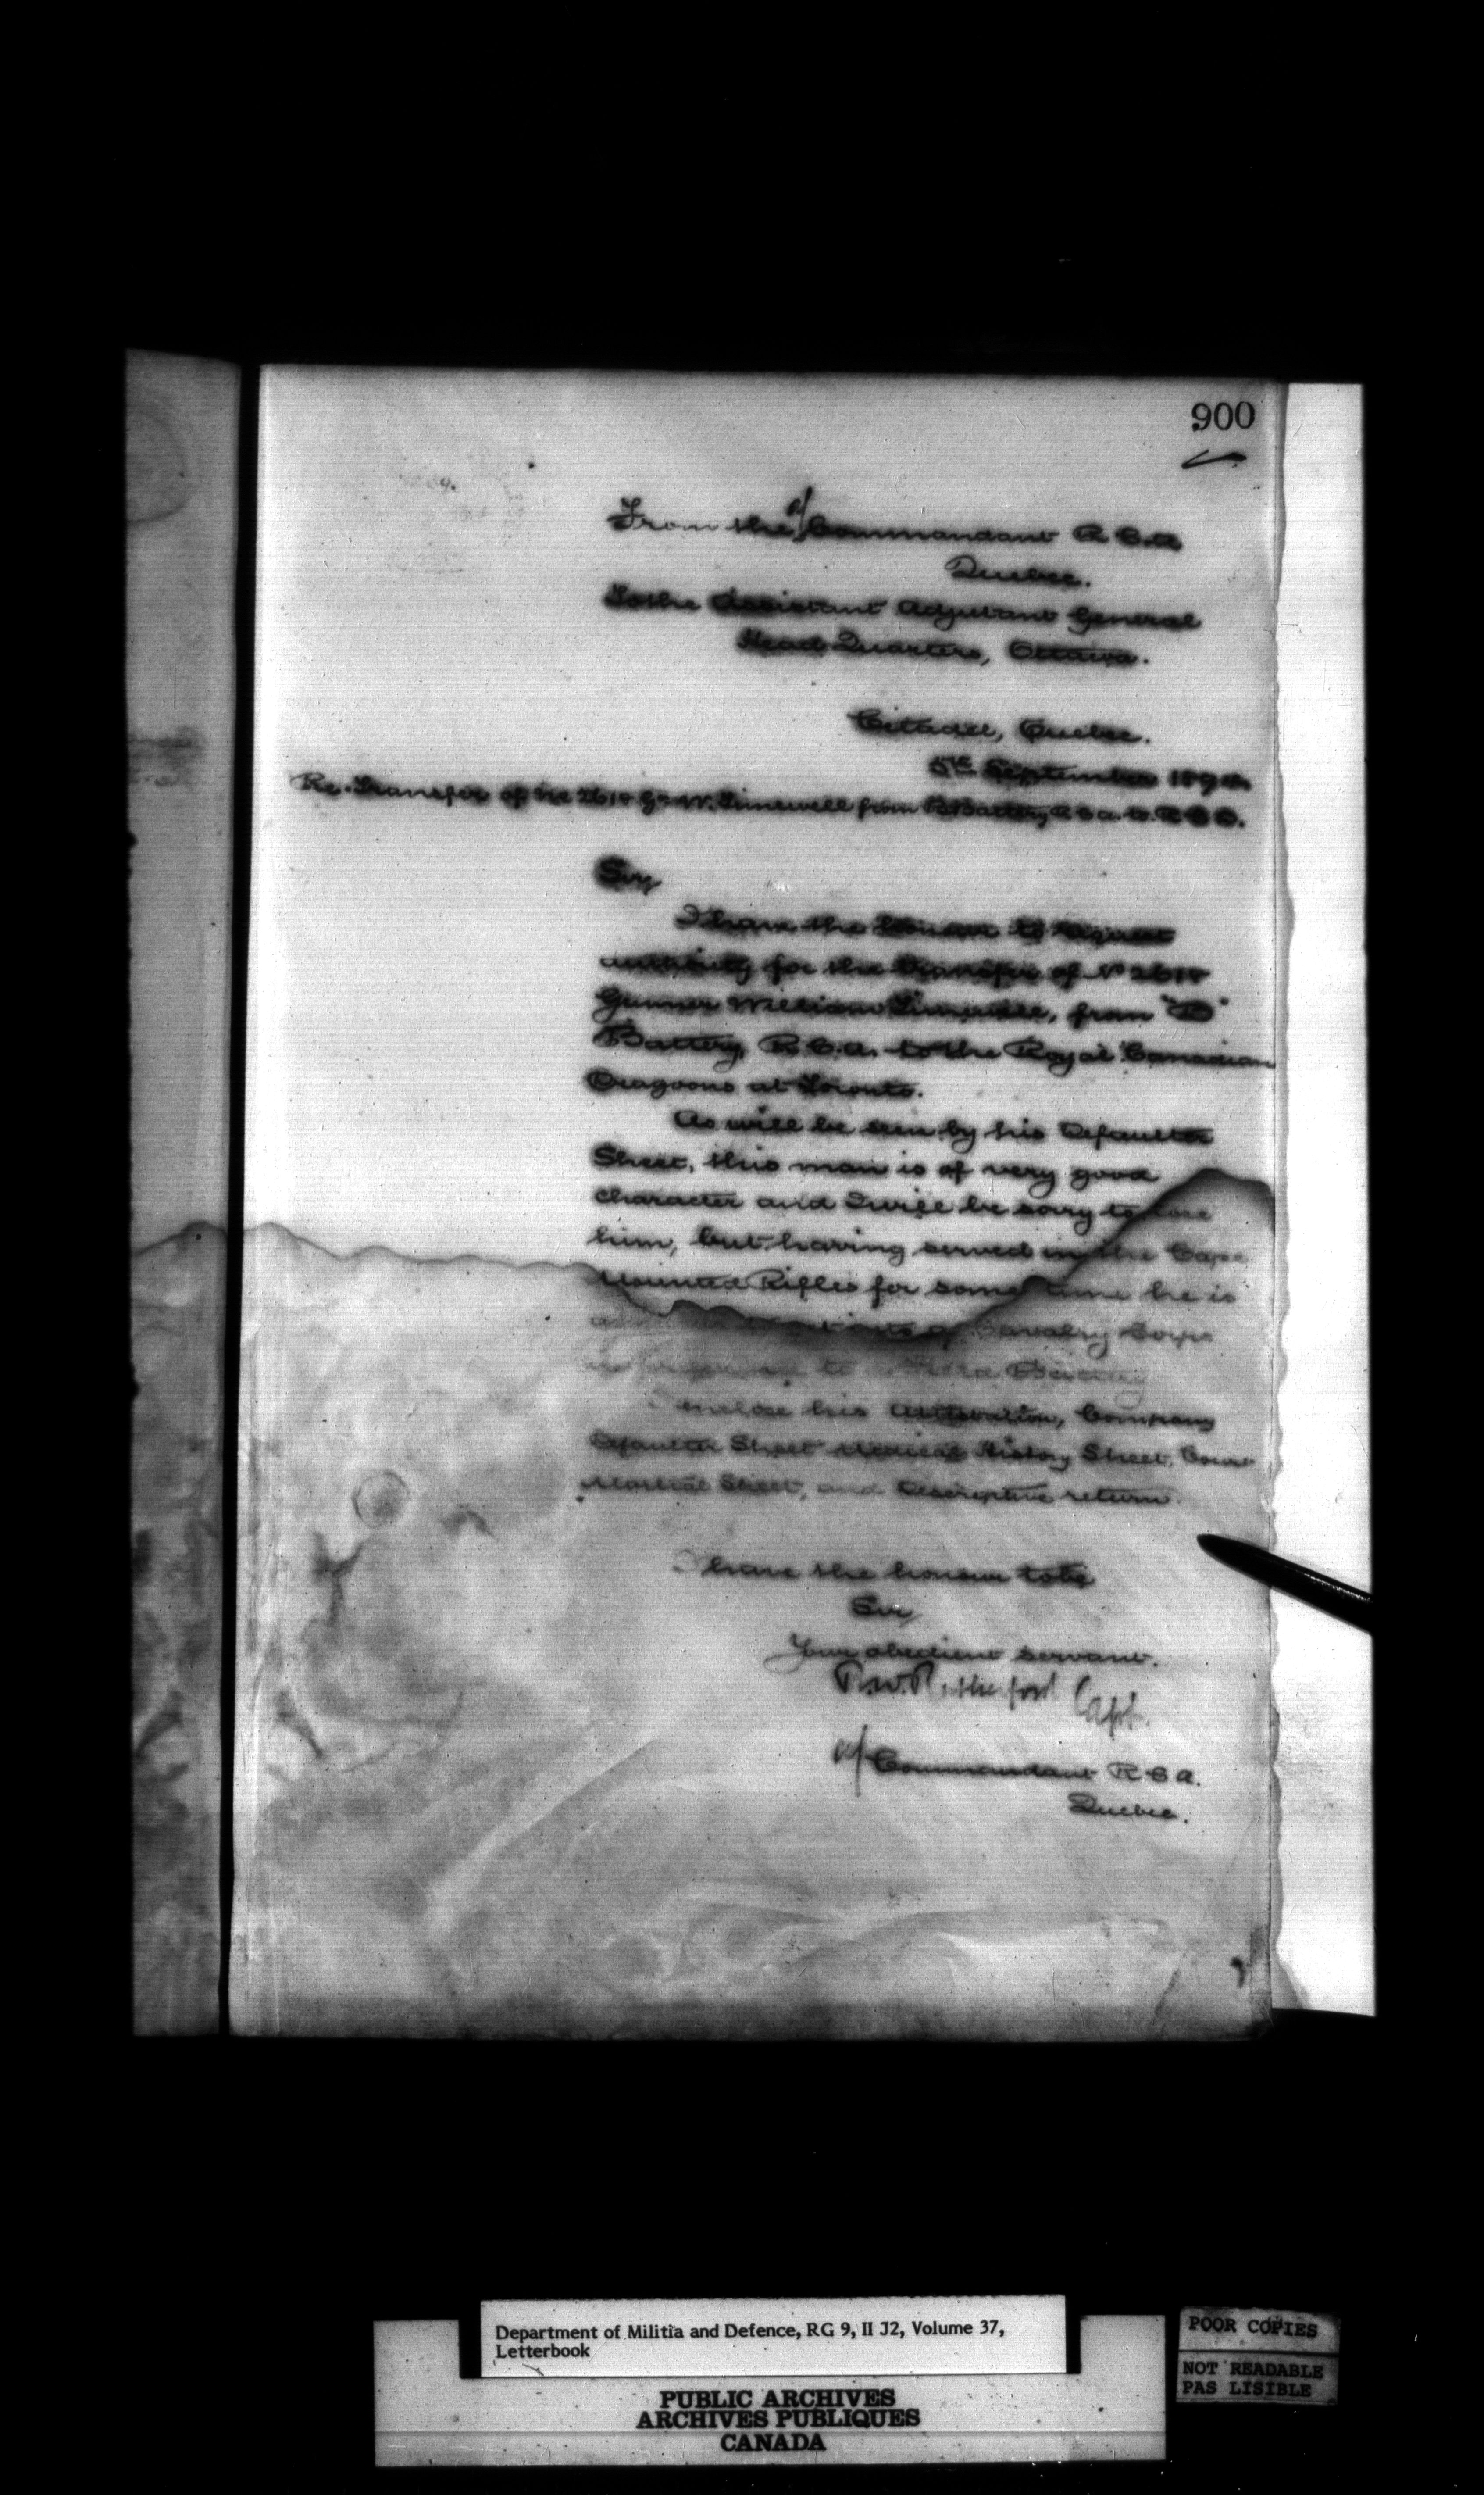 900
From the a/Commandant R.C.A.
Quebec.
To the Assistant Adjutant General
Head Quarters, Ottawa.
Citadel, Quebec.
5th September 189
Re. Transfer of No Gr W. Timewell from Battery, R.C.A. to R.C.D.
Sir,
I have the honour to request
authority for the transfer of No
Gunner William Timewell, from "B"
Battery, R.C.A. to the Royal Canadian
Dragoons at Toronto.
As will be seen by his Defaulter
Sheet, this man is of very good
character and I will be sorry to lose
him, but having served in the Cape
Mounted Rifles for some time he is
Cavalry Corps
to Field Battery
I enclose his Attestation, Company
Defaulter Sheet Medical History Sheet, Court
Martial Sheet, and Descriptive return.
I have the honour to be
Sir,
Your obedient servant.
R.W. Rutherford Capt.
a/Commandant R.C.A.
Quebec.
Department of Militia and Defence, RG 9, II J2, Volume 37,
Letterbook
PUBLIC ARCHIVES
ARCHIVES PUBLIQUES
CANADA
POOR COPIES
NOT READABLE
PAS LISIBLE